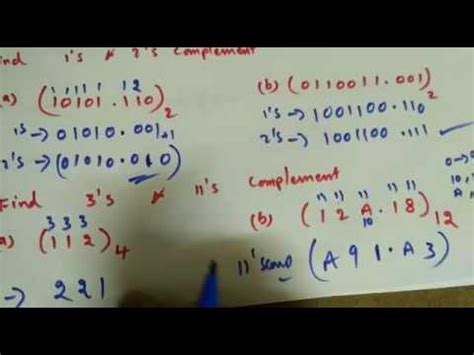 ind 1's & 2's Complement
a) (10101.110)₂
1's → 01010.001+1
2's → (01010.010)
(b) (0110011.001)₂
1's → 1001100.110
2's → 1001100.111
Find 3's & 11's Complement
3 3 3
a) (112)₄
→ 221
11 11 11 11 11
(b) (12A.18)₁₂
11's (A91.A3)
10
A